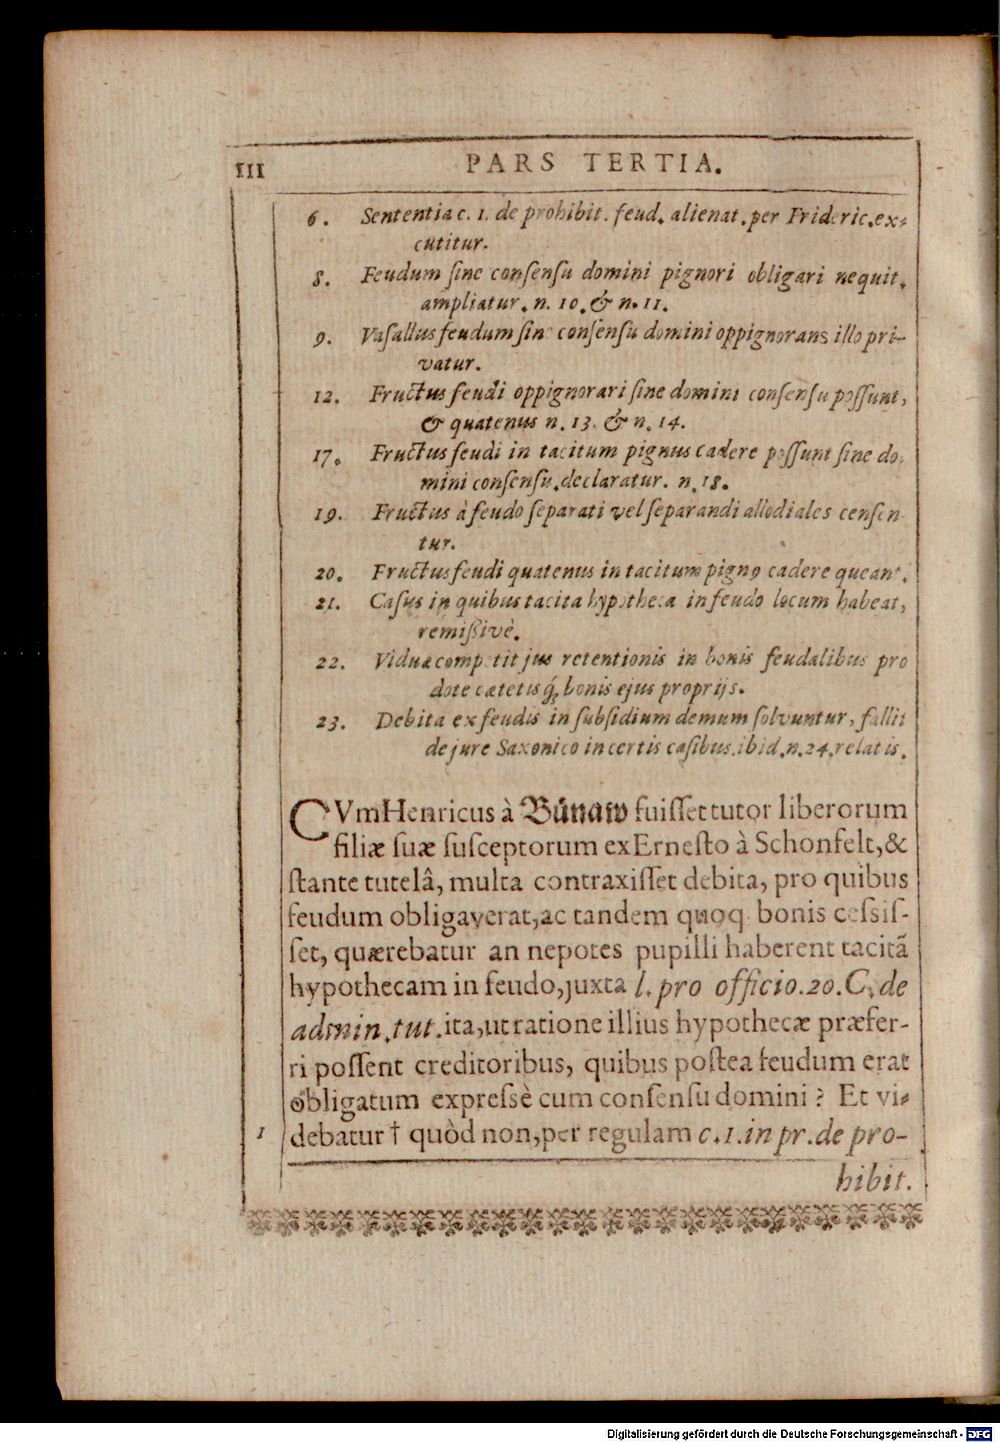 III PARS TERTIA.
6. Sententia c. 1. de prohibit. feud. alienat. per Frideric. ex-
cutitur.
8. Feudum sine consensu domini pignori obligari nequit.
ampliatur. n. 10. & n. 11.
9. Vasallus feudum sine consensu domini oppignorans illo pri-
vatur.
12. Fructus feudi oppignorari sine domini consensu possunt,
& quatenus n. 13. & n. 14.
17. Fructus feudi in tacitum pignus cadere possunt sine do-
mini consensu. declaratur. n. 18.
19. Fructus à feudo separati vel separandi allodiales censen-
tur.
20. Fructus feudi quatenus in tacitum pigno cadere queant.
21. Casus in quibus tacita hypotheca in feudo locum habeat,
remissivè.
22. Viduæ competit jus retentionis in bonis feudalibus pro
dote cætetisq́; bonis ejus proprijs.
23. Debita ex feudis in subsidium demum solvuntur, fallit
de jure Saxonico in certis casibus. ibid. n. 24. relatis.
CVm Henricus à Búnaw fuisset tutor liberorum
filiæ suæ susceptorum ex Ernesto à Schonfelt, &
stante tutelâ, multa contraxisset debita, pro quibus
feudum obligaverat, ac tandem quoq; bonis cessis-
set, quærebatur an nepotes pupilli haberent tacitã
hypothecam in feudo, juxta l. pro officio. 20. C. de
admin. tut. ita, ut ratione illius hypothecæ præfer-
ri possent creditoribus, quibus postea feudum erat
obligatum expressè cum consensu domini? Et vi-
1 debatur † quòd non, per regulam c. 1. in pr. de pro-
hibit.
Digitalisierung gefördert durch die Deutsche Forschungsgemeinschaft - DFG